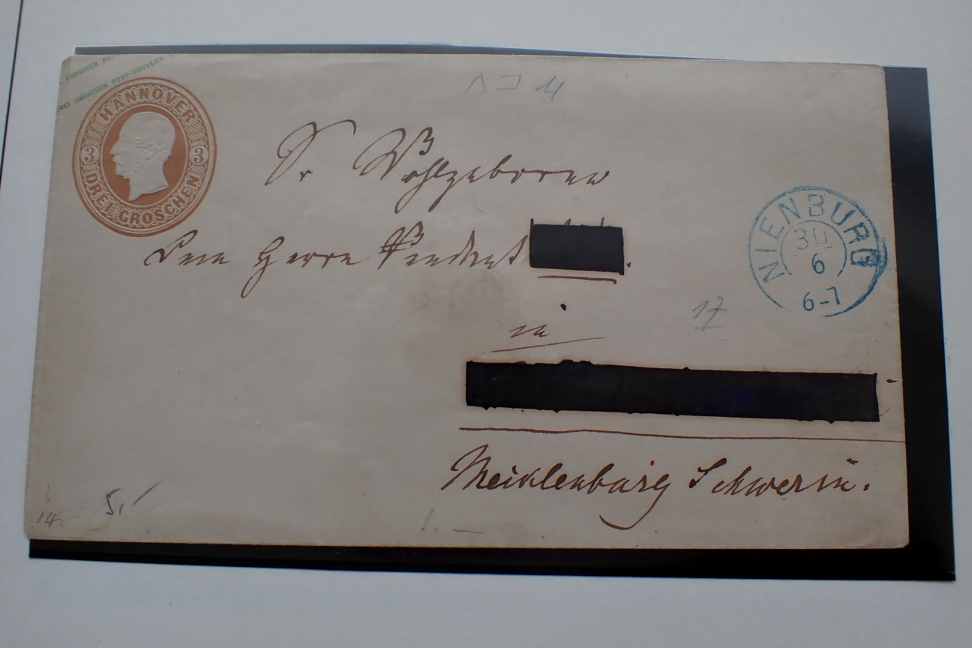 HANNOVER
3 3
DREI GROSCHEN
Sr Wohlgeboren
Dem Herrn
in
Mecklenburg Schwerin.
NIENBURG
30
6
6-7
17
14
5,-